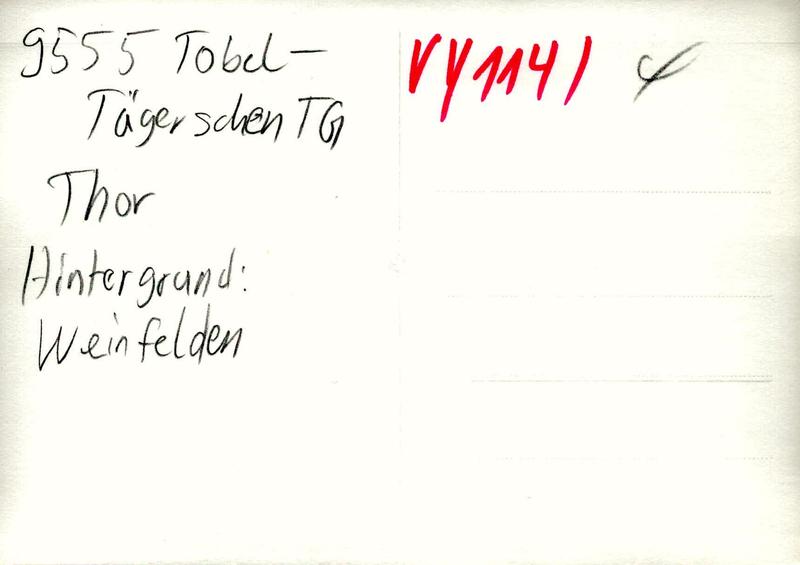 9555 Tobel-
Tägerschen TG
Thor
Hintergrund:
Weinfelden
VY1141